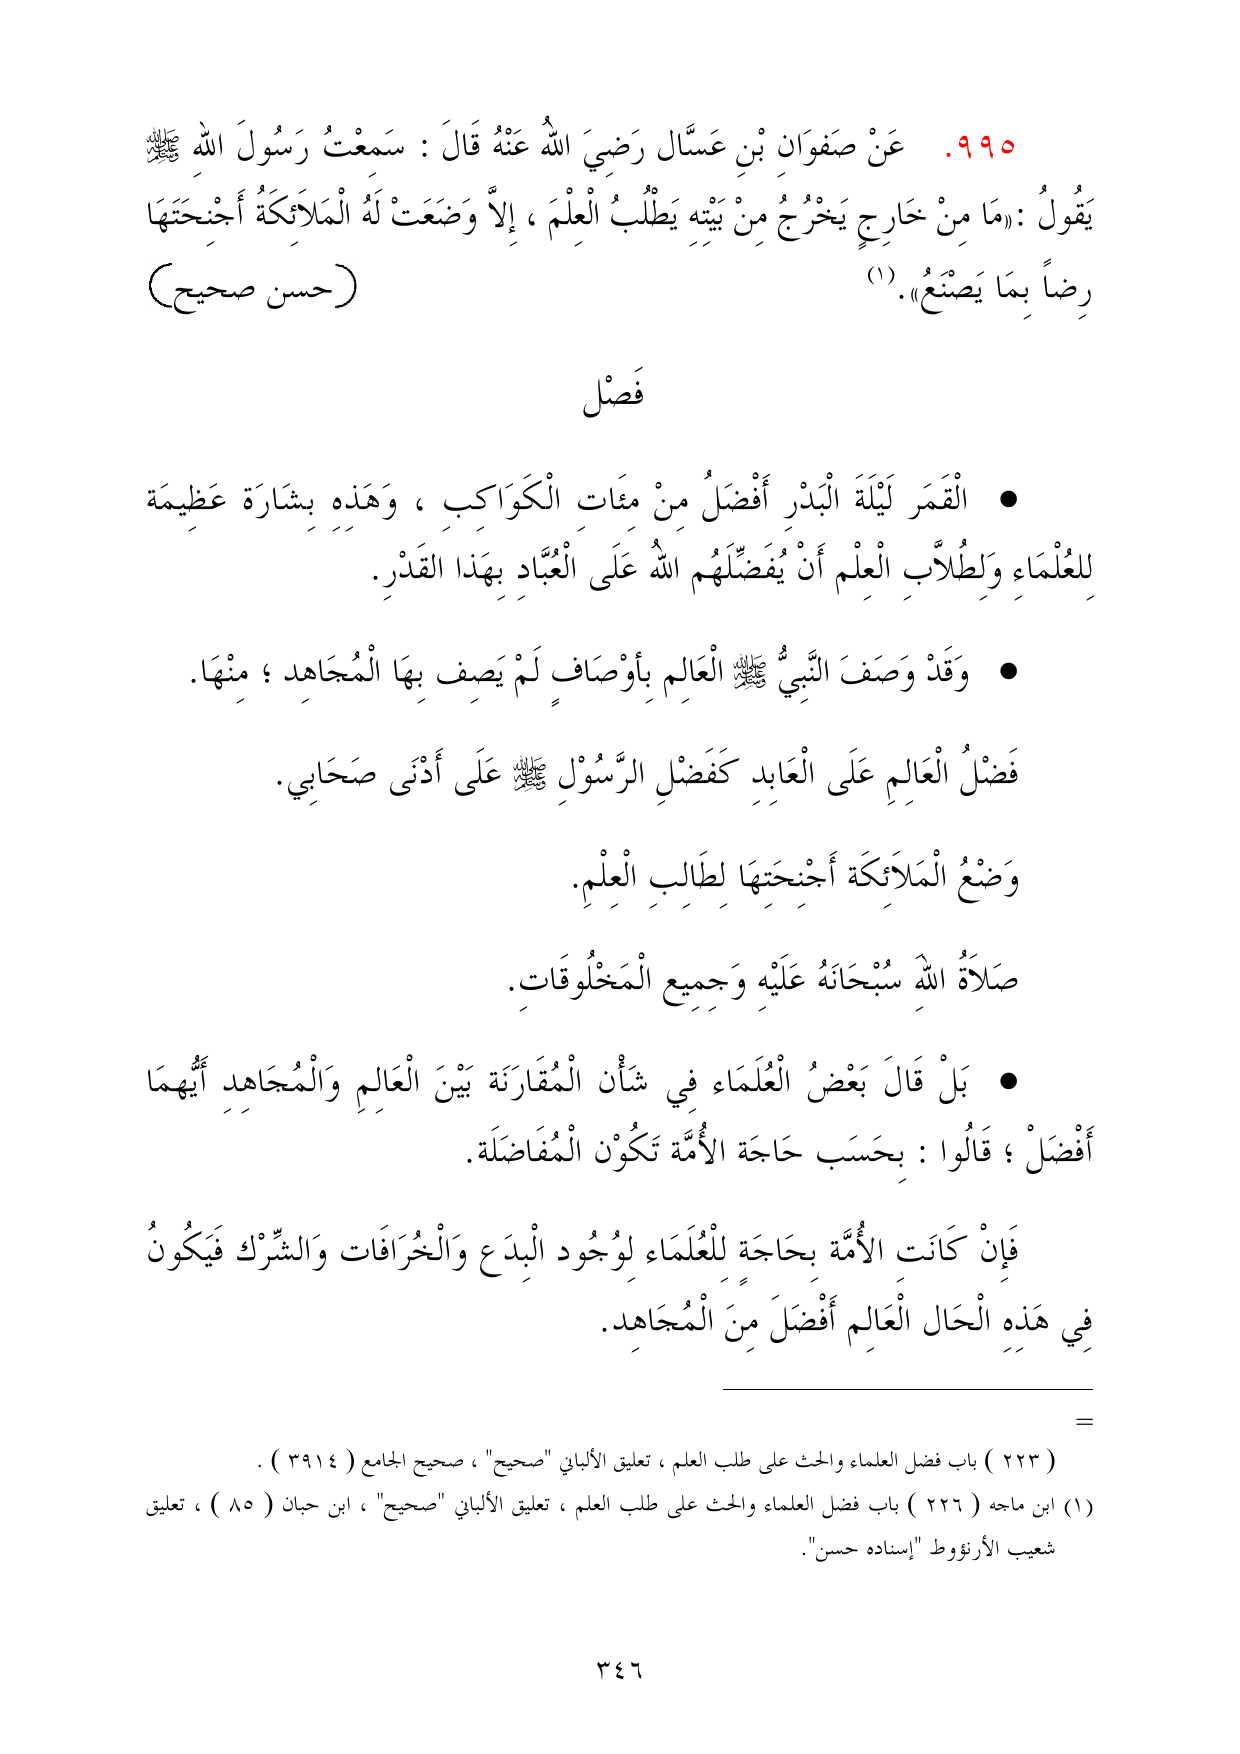 ٩٩٥. عَنْ صَفوَانِ بْنِ عَسَّال رَضِيَ اللهُ عَنْهُ قَالَ : سَمِعْتُ رَسُولَ اللهِ ﷺ
يَقُولُ :«مَا مِنْ خَارِجٍ يَخْرُجُ مِنْ بَيْتِهِ يَطْلُبُ الْعِلْمَ ، إِلاَّ وَضَعَتْ لَهُ الْمَلاَئِكَةُ أَجْنِحَتَهَا
رِضاً بِمَا يَصْنَعُ».(١) (حسن صحيح)
فَصْل
● الْقَمَر لَيْلَةَ الْبَدْرِ أَفْضَلُ مِنْ مِئَاتِ الْكَوَاكِبِ ، وَهَذِهِ بِشَارَة عَظِيمَة
لِلعُلْمَاءِ وَلِطُلاَّبِ الْعِلْم أَنْ يُفَضِّلَهُم اللهُ عَلَى الْعُبَّادِ بِهَذا القَدْرِ.
● وَقَدْ وَصَفَ النَّبِيُّ ﷺ الْعَالِم بِأوْصَافٍ لَمْ يَصِف بِهَا الْمُجَاهِد ؛ مِنْهَا.
فَضْلُ الْعَالِمِ عَلَى الْعَابِدِ كَفَضْلِ الرَّسُوْلِ ﷺ عَلَى أَدْنَى صَحَابِي.
وَضْعُ الْمَلاَئِكَة أَجْنِحَتِهَا لِطَالِبِ الْعِلْمِ.
صَلاَةُ اللهِ سُبْحَانَهُ عَلَيْهِ وَجِمِيع الْمَخْلُوقَاتِ.
● بَلْ قَالَ بَعْضُ الْعُلَمَاء فِي شَأْن الْمُقَارَنَة بَيْنَ الْعَالِمِ وَالْمُجَاهِدِ أَيُّهمَا
أَفْضَلْ ؛ قَالُوا : بِحَسَب حَاجَة الأُمَّة تَكُوْن الْمُفَاضَلَة.
فَإِنْ كَانَتِ الأُمَّة بِحَاجَةٍ لِلْعُلَمَاء لِوُجُود الْبِدَع وَالْخُرَافَات وَالشِّرْك فَيَكُونُ
فِي هَذِهِ الْحَال الْعَالِم أَفْضَلَ مِنَ الْمُجَاهِد.
=
( ٢٢٣ ) باب فضل العلماء والحث على طلب العلم ، تعليق الألباني "صحيح" ، صحيح الجامع ( ٣٩١٤ ) .
(١) ابن ماجه ( ٢٢٦ ) باب فضل العلماء والحث على طلب العلم ، تعليق الألباني "صحيح" ، ابن حبان ( ٨٥ ) ، تعليق
شعيب الأرنؤوط "إسناده حسن".
٣٤٦